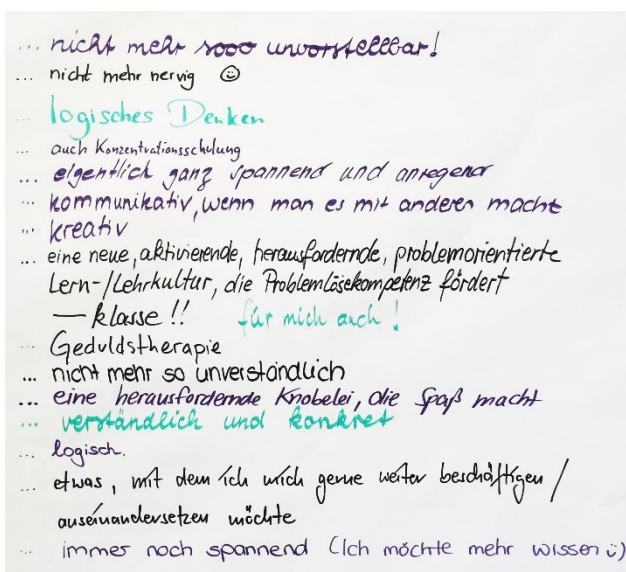 ... nicht mehr sooo unvorstellbar!
... nicht mehr nervig ☺
... logisches Denken
... auch Konzentrationsschulung
... eigentlich ganz spannend und anregend
... kommunikativ, wenn man es mit anderen macht
... kreativ
... eine neue, aktivierende, herausfordernde, problemorientierte
Lern-/Lehrkultur, die Problemlösekompetenz fördert
— klasse!! für mich auch!
... Geduldstherapie
... nicht mehr so unverständlich
... eine herausfordernde Knobelei, die Spaß macht
... verständlich und konkret
... logisch.
... etwas, mit dem ich mich gerne weiter beschäftigen /
auseinandersetzen möchte
... immer noch spannend (Ich möchte mehr wissen ü)